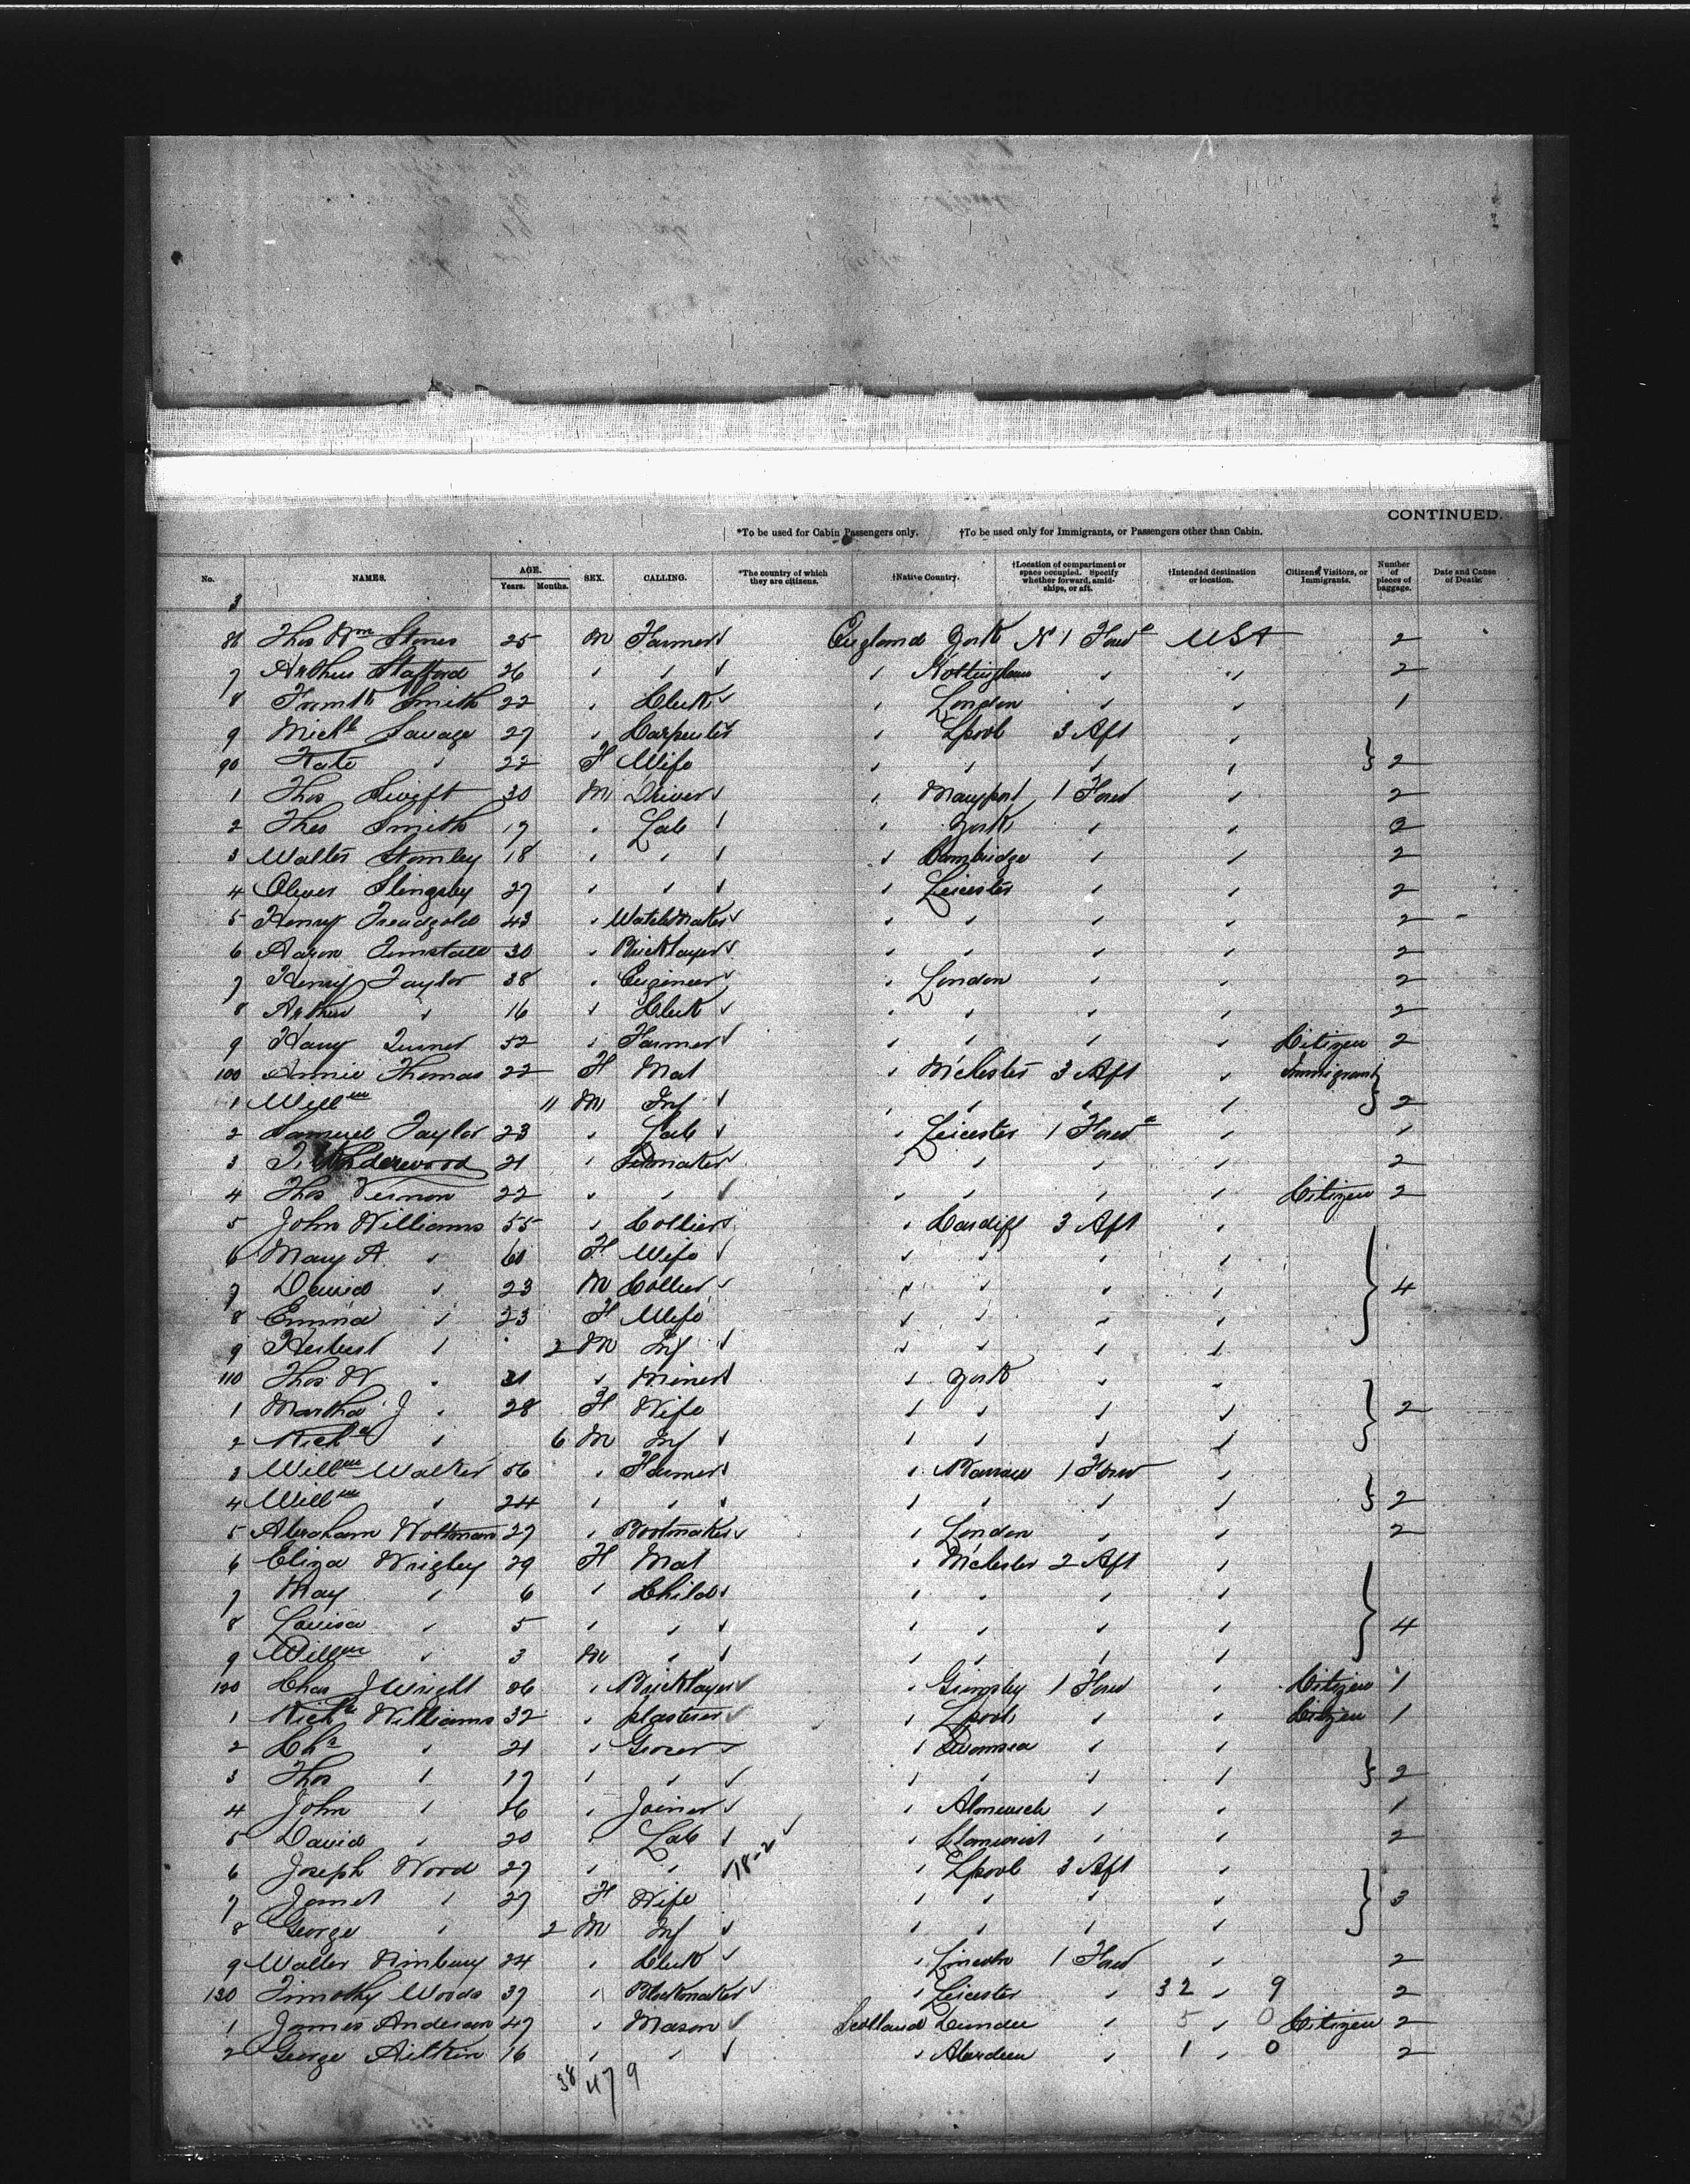 CONTINUED.
*To be used for Cabin Passengers only. †To be used only for Immigrants, or Passengers other than Cabin.
No. NAMES. AGE. Years. Months. SEX. CALLING. *The country of which they are citizens. †Native Country. †Location of compartment or space occupied. Specify whether forward, amidships, or aft. †Intended destination or location. Citizens, Visitors, or Immigrants. Number of pieces of baggage. Date and Cause of Death.
3
86 Thos Wm 25 M Farmer England York 1 Forwd USA 2
7 Arthur Stafford 26 " " " Nottingham " " 2
8 Frank Smith 22 " Clerk " London " " 1
9 Michl Savage 27 " Carpenter " Lpool 3 Aft "
90 Kate " 22 F Wife " " " " 2
1 Thos Swift 30 M Driver " Maryport 1 Forwd " 2
2 Thos Smith 17 " Lab " York " " 2
3 Walter Stanley 18 " " " Cambridge " " 2
4 Oliver Slingsby 27 " " " Leicester " " 2
5 Henry Treadgold 43 " Watchmaker " " " " 2
6 Aaron Tunstall 30 " Bricklayer " " " " 2
7 Henry Taylor 38 " Engineer " London " " 2
8 Arthur " 16 " Clerk " " " " 2
9 Harry Turner 52 " Farmer " " " " Citizen 2
100 Annie Thomas 22 F Mat " M'chester 3 Aft " Immigrant
1 Willm 11 M Inf " " " " 2
2 Samuel Taylor 23 " Lab " Leicester 1 Forwd " 1
3 T. Underwood 21 " " " " " 2
4 Thos Vernon 22 " " " " " " Citizen 2
5 John Williams 55 " Collier " Cardiff 3 Aft "
6 Mary A " 60 F Wife " " " "
7 David " 23 M Collier " " " " 4
8 Emma " 23 F Wife " " " "
9 Herbert " 2 M Inf " " " "
110 Thos W " 31 " Miner " York " "
1 Martha J " 28 F Wife " " " " 2
2 Richd " 6 M Inf " " " "
3 Willm Walker 56 " Farmer " 1 Forwd "
4 Willm " 24 " " " " " " 2
5 Abraham Woltman 27 " Bootmaker " London " " 2
6 Eliza Wrigley 29 F Mat " M'chester 2 Aft "
7 May " 6 " Child " " " "
8 Louisa " 5 " " " " " " 4
9 Willm " 3 M " " " " "
120 Chas J Wright 36 " Bricklayer " Grimsby 1 Forwd " Citizen 1
1 Richd Williams 32 " Plasterer " Lpool " " Citizen 1
2 Chs " 21 " Grocer " Swansea " "
3 Thos " 17 " " " " " " 2
4 John " 26 " Joiner " Alnwick " " 1
5 David " 20 " Lab " " " 2
6 Joseph Wood 27 " " 18-2 " Lpool 3 Aft "
7 Janet " 27 F Wife " " " " 3
8 George " 2 M Inf " " " "
9 Walter 24 " Clerk " Lincoln 1 Forwd " 2
130 Timothy Woods 37 " " Leicester " 32 " 9 2
1 James Anderson 47 " Mason Scotland Dundee " 5 " 0 Citizen 2
2 George Aitken 16 " " " Aberdeen " 1 " 0 2
38 47 9